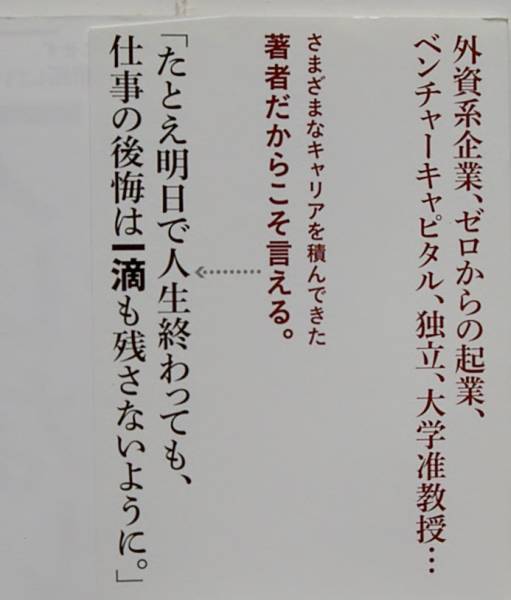 外資系企業、ゼロからの起業、
ベンチャーキャピタル、独立、大学准教授…
さまざまなキャリアを積んできた
著者だからこそ言える。
「たとえ明日で人生終わっても、
仕事の後悔は一滴も残さないように。」